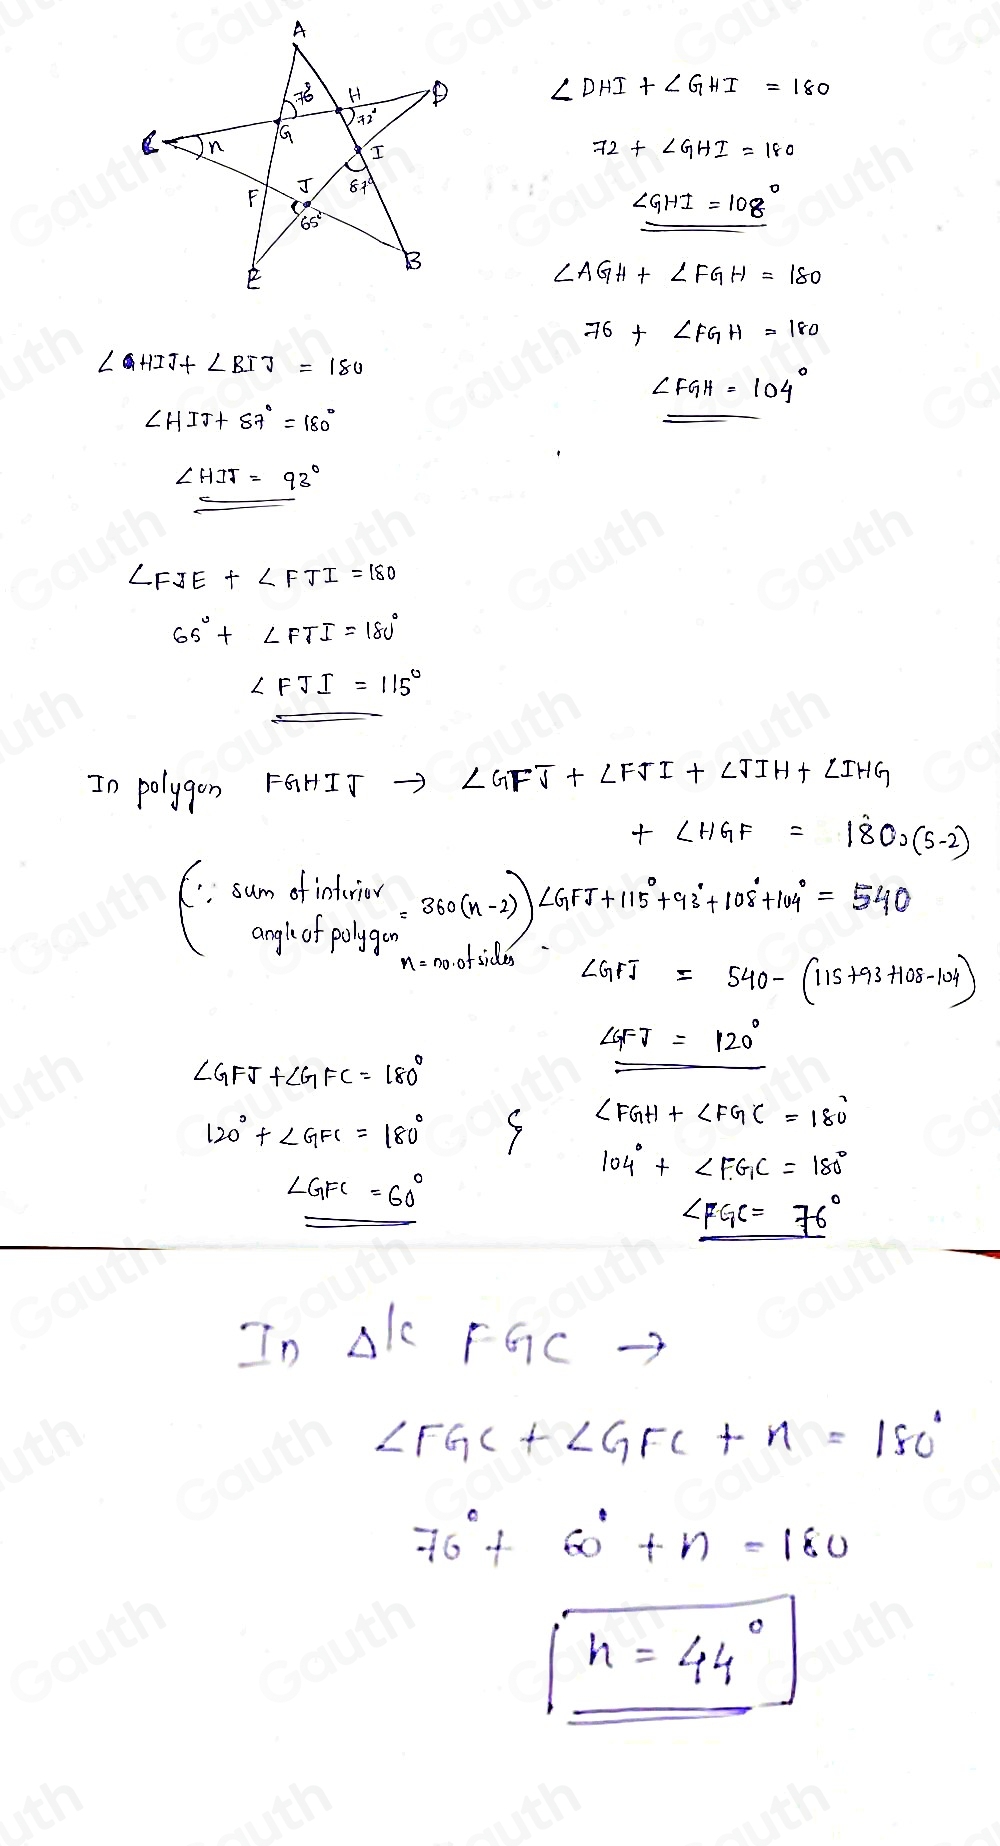 A
76°
H
D
G
72°
C
n
I
F
J
87°
65°
E
B
∠DHI + ∠GHI = 180
72 + ∠GHI = 180
∠GHI = 108°
∠AGH + ∠FGH = 180
76 + ∠FGH = 180
∠FGH = 104°
∠HIJ + ∠BIJ = 180
∠HIJ + 87° = 180°
∠HIJ = 93°
∠FJE + ∠FJI = 180
65° + ∠FJI = 180°
∠FJI = 115°
In polygon FGHIJ → ∠GFJ + ∠FJI + ∠JIH + ∠IHG
+ ∠HGF = 180×(5-2)
(∵ sum of interior angle of polygon = 360(n-2)) ∠GFJ + 115° + 93° + 108° + 104° = 540
n = no. of sides
∠GFJ = 540 - (115 + 93 + 108 - 104)
∠GFJ = 120°
∠GFJ + ∠GFC = 180°
120° + ∠GFC = 180°
∠GFC = 60°
&
∠FGH + ∠FGC = 180°
104° + ∠FGC = 180°
∠FGC = 76°
In Δlc FGC →
∠FGC + ∠GFC + n = 180°
76° + 60° + n = 180
n = 44°
Gauth